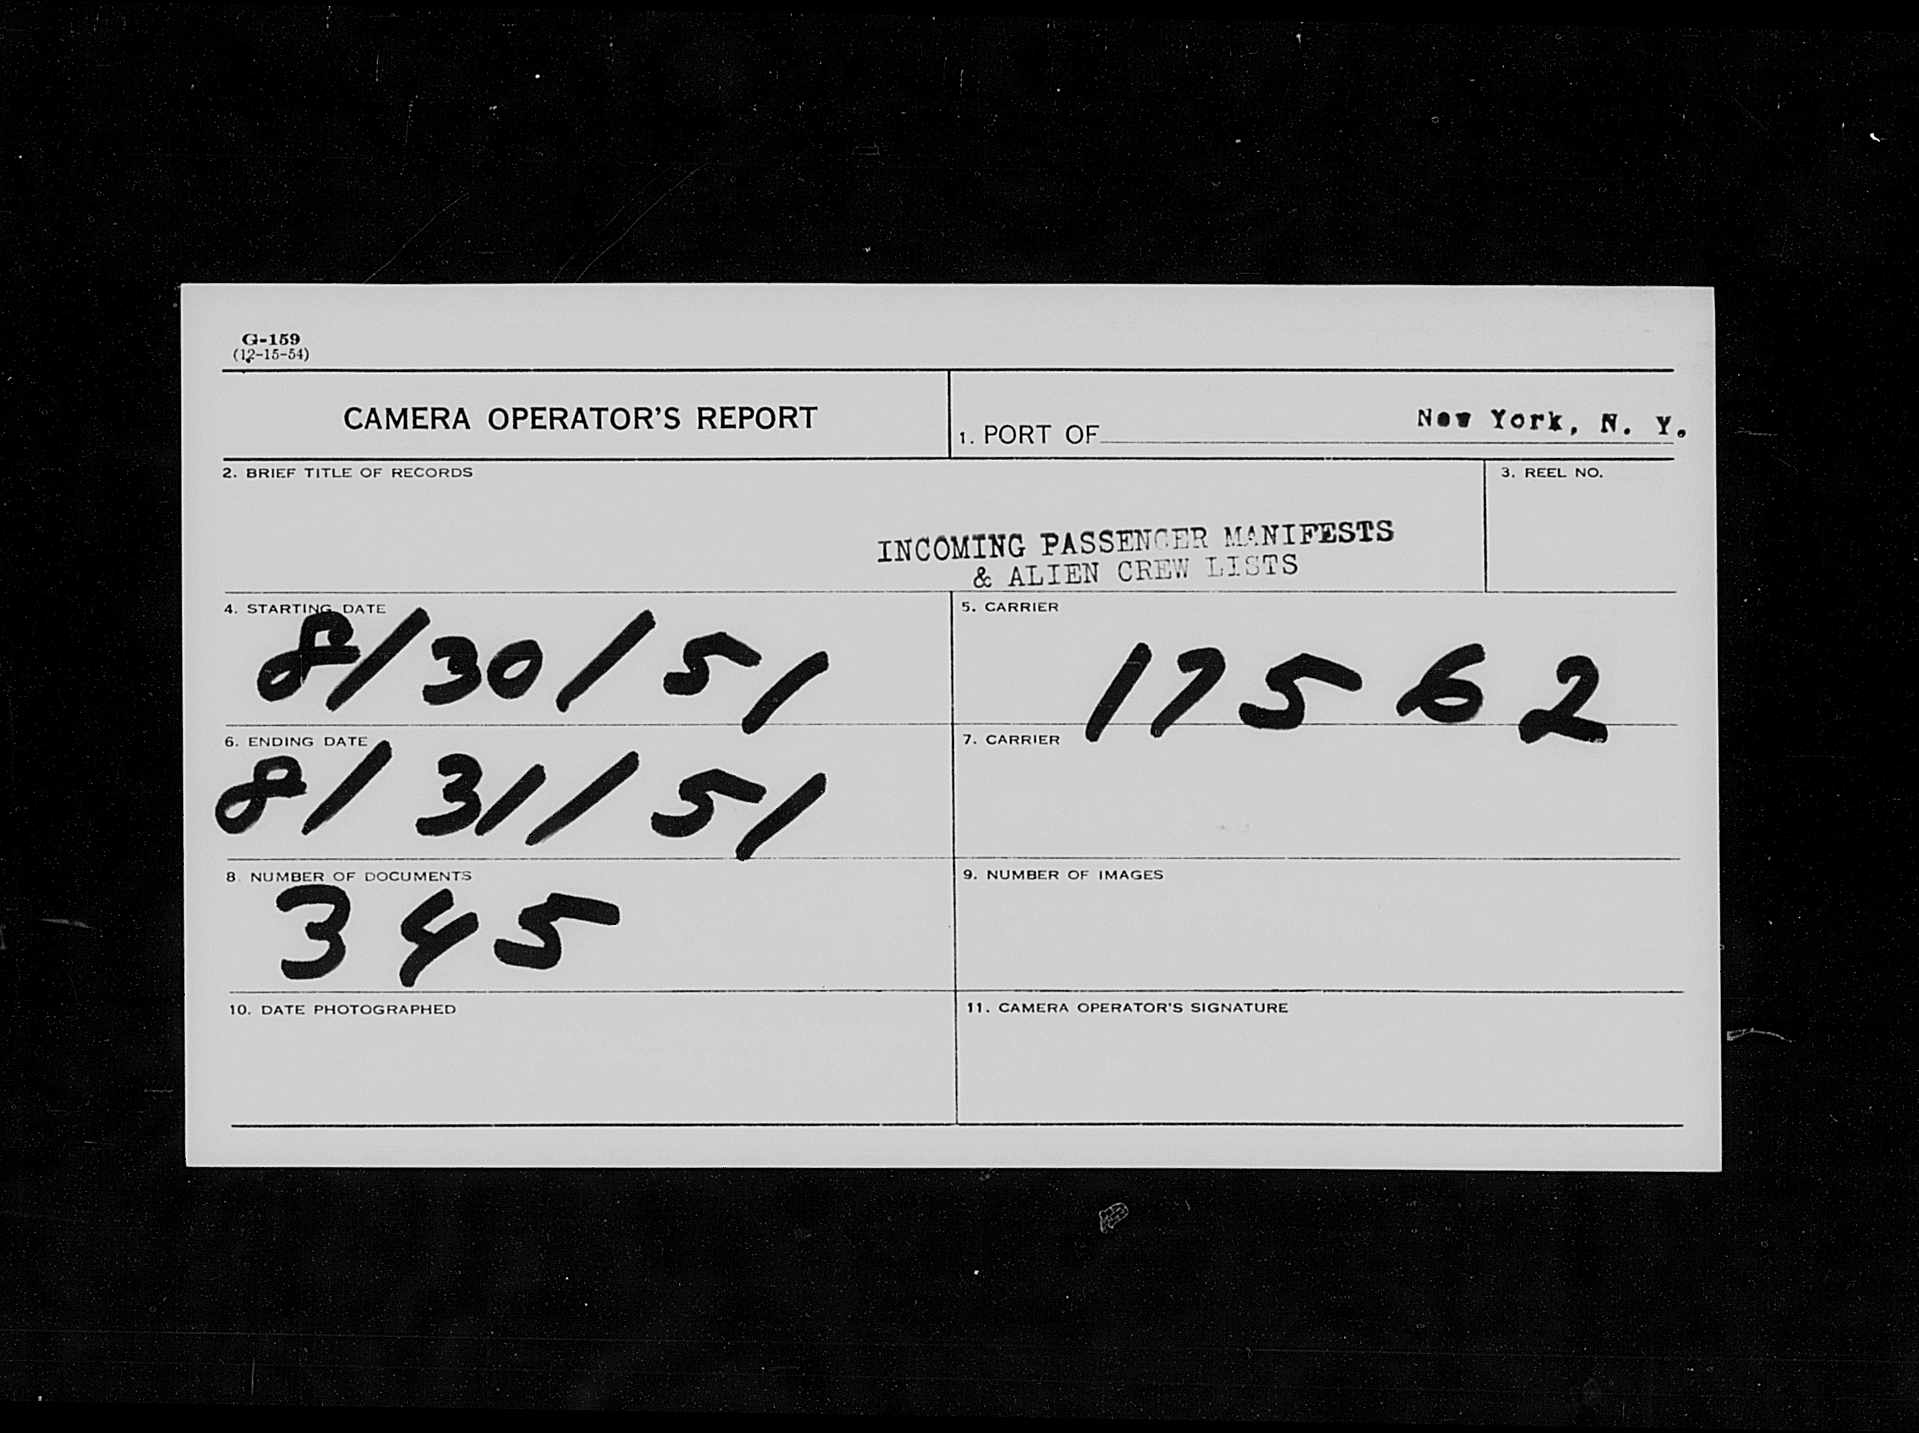 G-159
(12-15-54)
CAMERA OPERATOR'S REPORT
1. PORT OF New York, N. Y.
2. BRIEF TITLE OF RECORDS
3. REEL NO.
INCOMING PASSENGER MANIFESTS
& ALIEN CREW LISTS
4. STARTING DATE
8/30/51
5. CARRIER
17562
6. ENDING DATE
8/31/51
7. CARRIER
8. NUMBER OF DOCUMENTS
345
9. NUMBER OF IMAGES
10. DATE PHOTOGRAPHED
11. CAMERA OPERATOR'S SIGNATURE